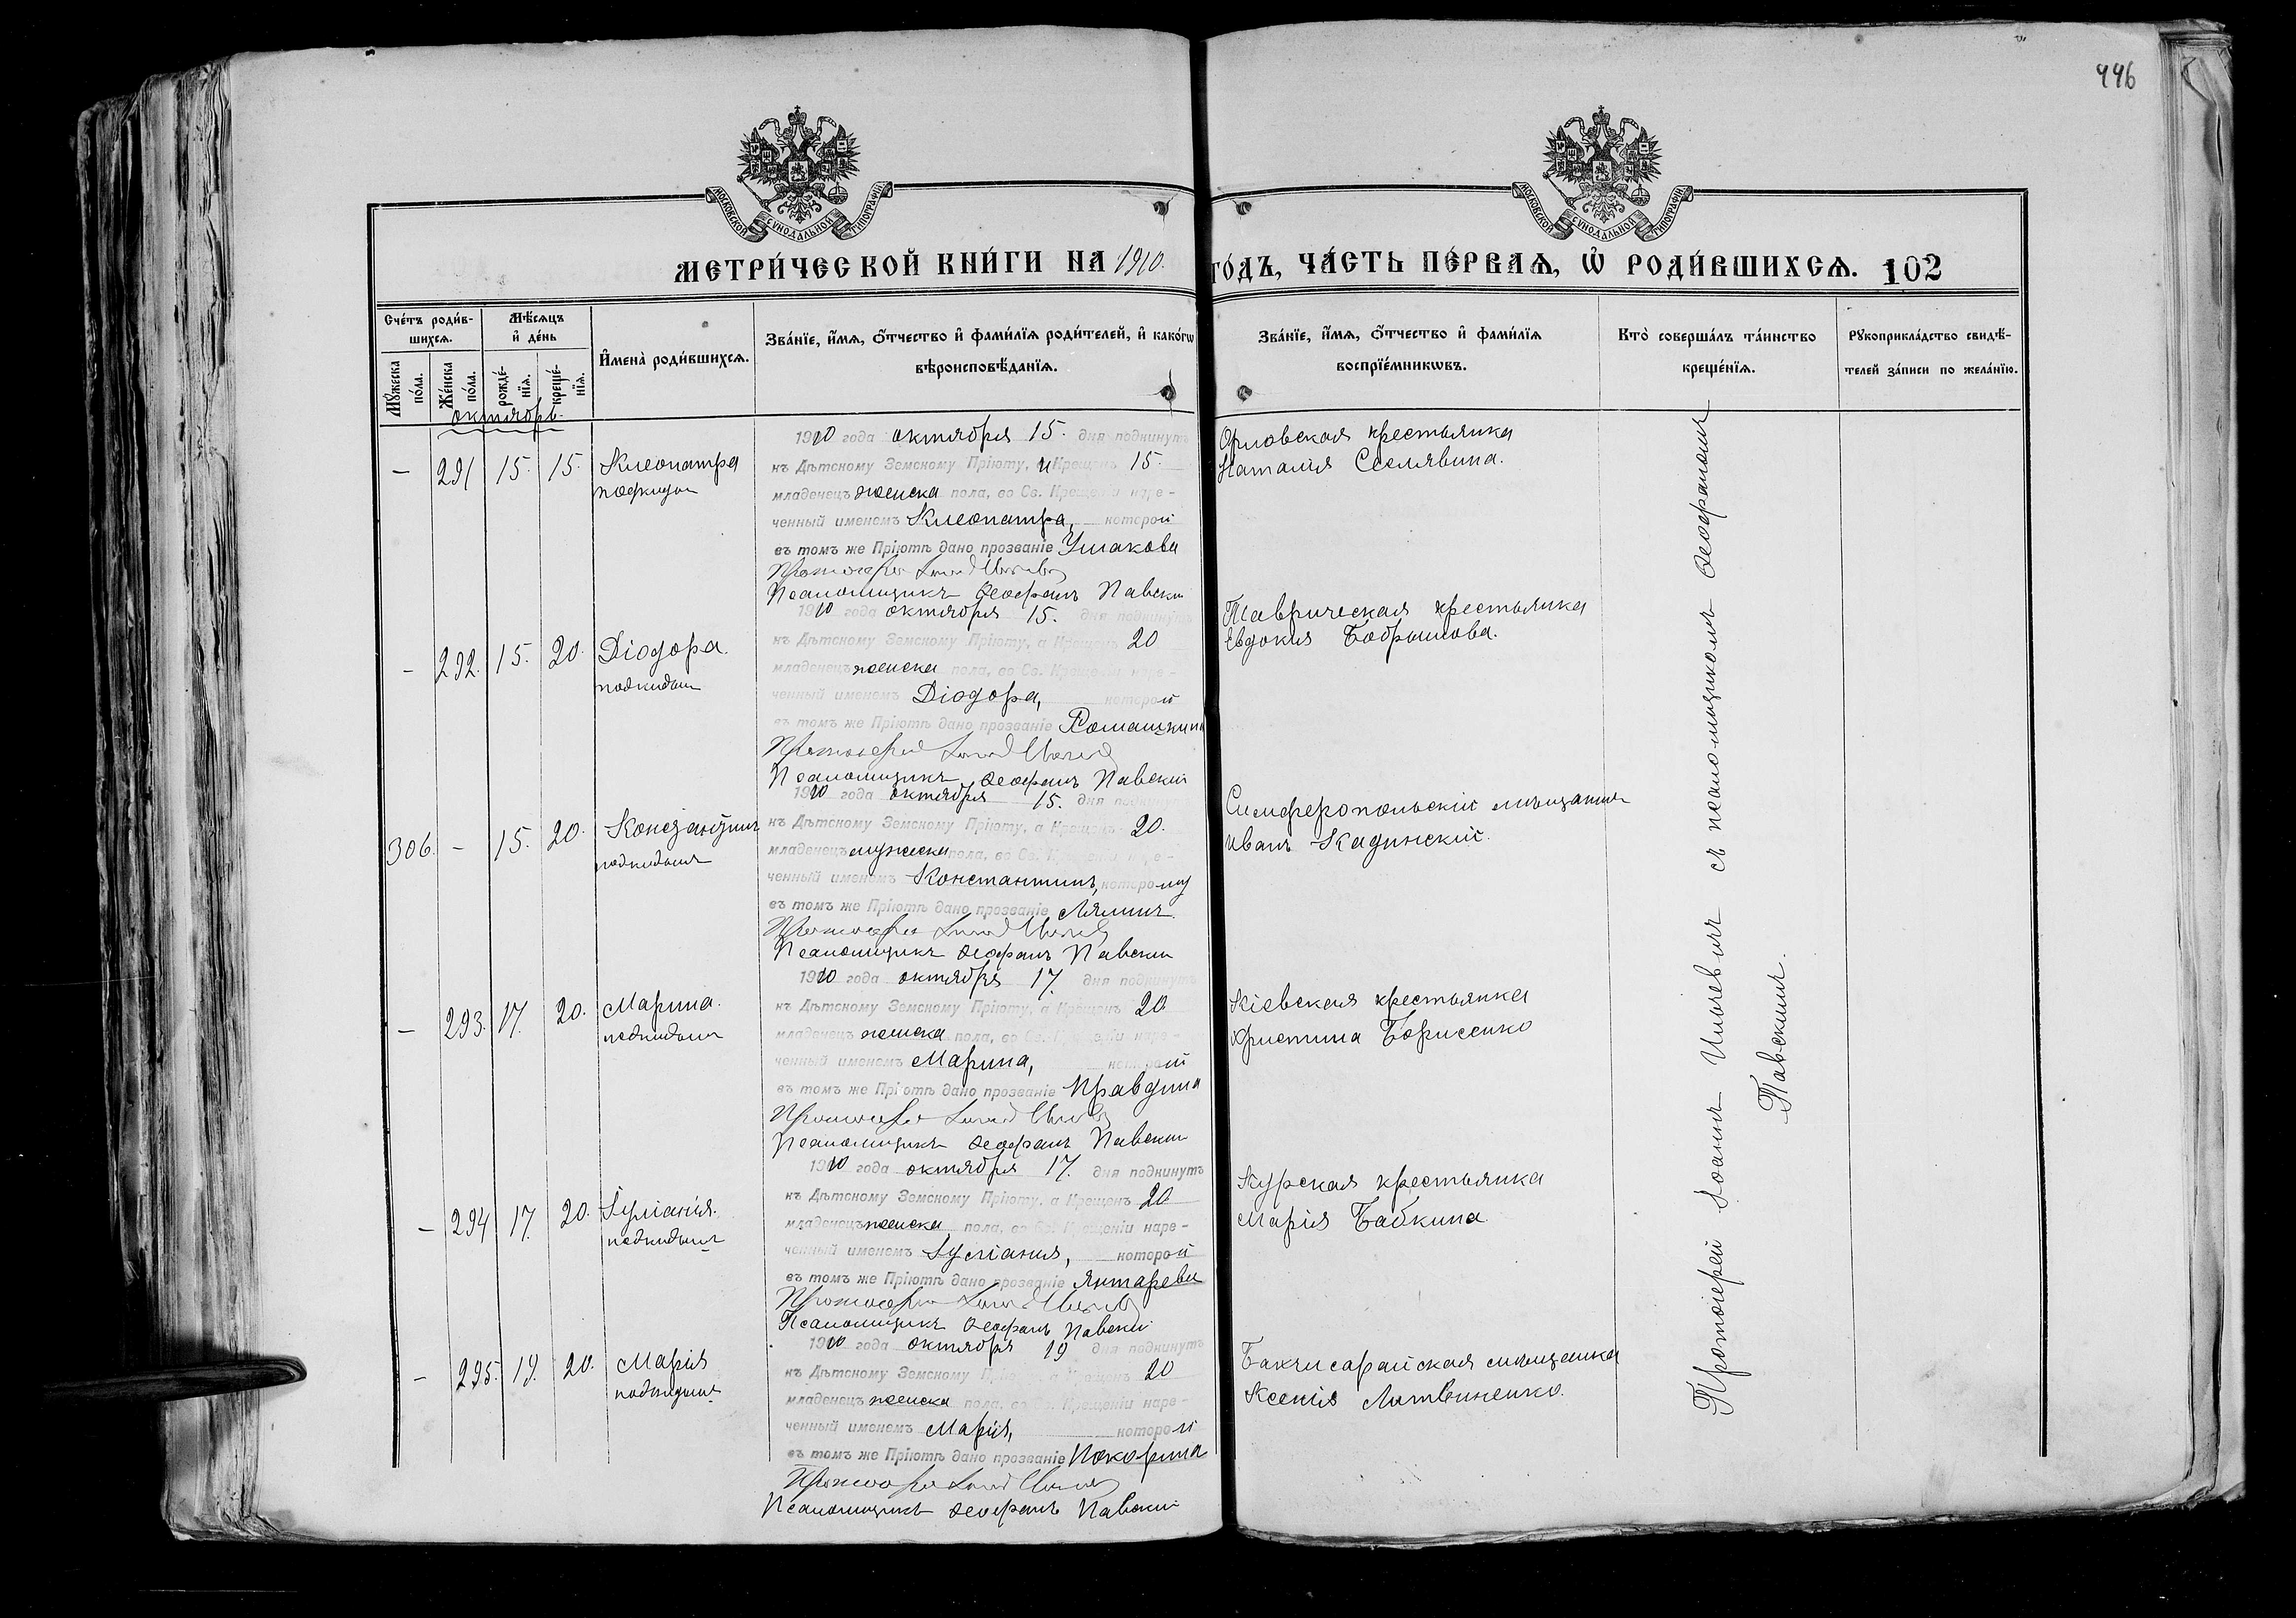 446
МОСКОВСКОЙ СѴНОДАЛЬНОЙ ТИПОГРАФІИ
МОСКОВСКОЙ СѴНОДАЛЬНОЙ ТИПОГРАФІИ
МЕТРИ́ЧЕСКОЙ КНИ́ГИ НА 1910. ГО́ДЪ, ЧА́СТЬ ПЕ́РВАѦ, Ѡ҆ РОДИ́ВШИХСѦ. 102
Сче́тъ роди́в-
шихсѧ.
Мꙋ́жеска по́ла.
Же́нска по́ла.
Мѣ́сѧцъ
и҆ де́нь
рожде́-
нїѧ.
креще́-
нїѧ.
И҆мена̀ роди́вшихсѧ.
Зва́нїе, и҆́мѧ, ѻ҆́тчество и҆ фами́лїѧ роди́телей, и҆ како́гѡ
вѣроисповѣ́данїѧ.
Зва́нїе, и҆́мѧ, ѻ҆́тчество и҆ фами́лїѧ
воспрїе́мникѡвъ.
Кто̀ соверша́лъ та́инство
креще́нїѧ.
Рꙋкоприкла́дство свидѣ́-
телей за́писи по жела́нїю.
октябрь.
— 291 15. 15. Клеопатра
подкидыш
1910 года октября 15. дня подкинутъ
къ Дѣтскому Земскому Пріюту, и Крещенъ 15.
младенецъ женска пола, во Св. Крещеніи наре-
ченный именемъ Клеопатра, которой
въ томъ же Пріютѣ дано прозваніе Ушакова
Псаломщикъ Ѳеофанъ Павскій
Орловская крестьянка
Наталія Селявина.
— 292. 15. 20. Діодора.
подкидыш
1910 года октября 15. дня подкинутъ
къ Дѣтскому Земскому Пріюту, а Крещенъ 20
младенецъ женска пола, во Св. Крещеніи наре-
ченный именемъ Діодора, которой
въ томъ же Пріютѣ дано прозваніе Ромашкина
Псаломщикъ Ѳеофанъ Павскій
Таврическая крестьянка
Евдокия Бобрышова.
306. — 15. 20. Константинъ
подкидышъ
1910 года октября 15. дня подкинутъ
къ Дѣтскому Земскому Пріюту, а Крещенъ 20.
младенецъ мужска пола, во Св. Крещеніи наре-
ченный именемъ Константинъ, которому
въ томъ же Пріютѣ дано прозваніе Лялинъ.
Псаломщикъ Ѳеофанъ Павскій
Симферопольскій мѣщанинъ
Иванъ Кадинскій.
— 293. 17. 20. Марина.
подкидышъ
1910 года октября 17. дня подкинутъ
къ Дѣтскому Земскому Пріюту, а Крещенъ 20
младенецъ женска пола, во Св. Крещеніи наре-
ченный именемъ Марина, которой
въ томъ же Пріютѣ дано прозваніе Правдина
Псаломщикъ Ѳеофанъ Павскій
Кіевская крестьянка
Христина Борисенко
— 294 17. 20. Іуліанія.
подкидышъ
1910 года октября 17. дня подкинутъ
къ Дѣтскому Земскому Пріюту, а Крещенъ 20
младенецъ женска пола, во Св. Крещеніи наре-
ченный именемъ Іуліания, которой
въ томъ же Пріютѣ дано прозваніе Янтарева
Псаломщикъ Ѳеофанъ Павскій
Курская крестьянка
Марія Бабкина
— 295. 19. 20. Марія
подкидышъ
1910 года октября 19 дня подкинутъ
къ Дѣтскому Земскому Пріюту, а Крещенъ 20
младенецъ женска пола, во Св. Крещеніи наре-
ченный именемъ Марія, которой
въ томъ же Пріютѣ дано прозваніе Покорина
Псаломщикъ Ѳеофанъ Павскій
Бахчисарайская мѣщанка
Ксенія Литвиненко.
Протоіерей Іоаннъ Ильевичъ съ псаломщикомъ Ѳеофаномъ
Павскимъ.